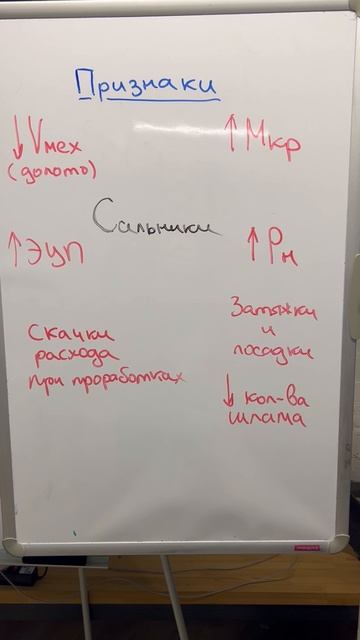 Признаки
↓Vмех
(долото)
↑Мкр
Сальники
↑ЭЦП
↑Рн
Затяжки
и
посадки
Скачки
расхода
при проработках
↓ кол-ва
шлама